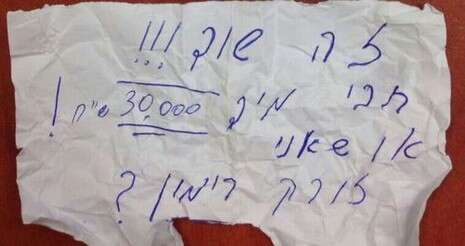 זה שוד!!!
תני מיד 30,000 ש"ח!
או שאני
זורק רימון?